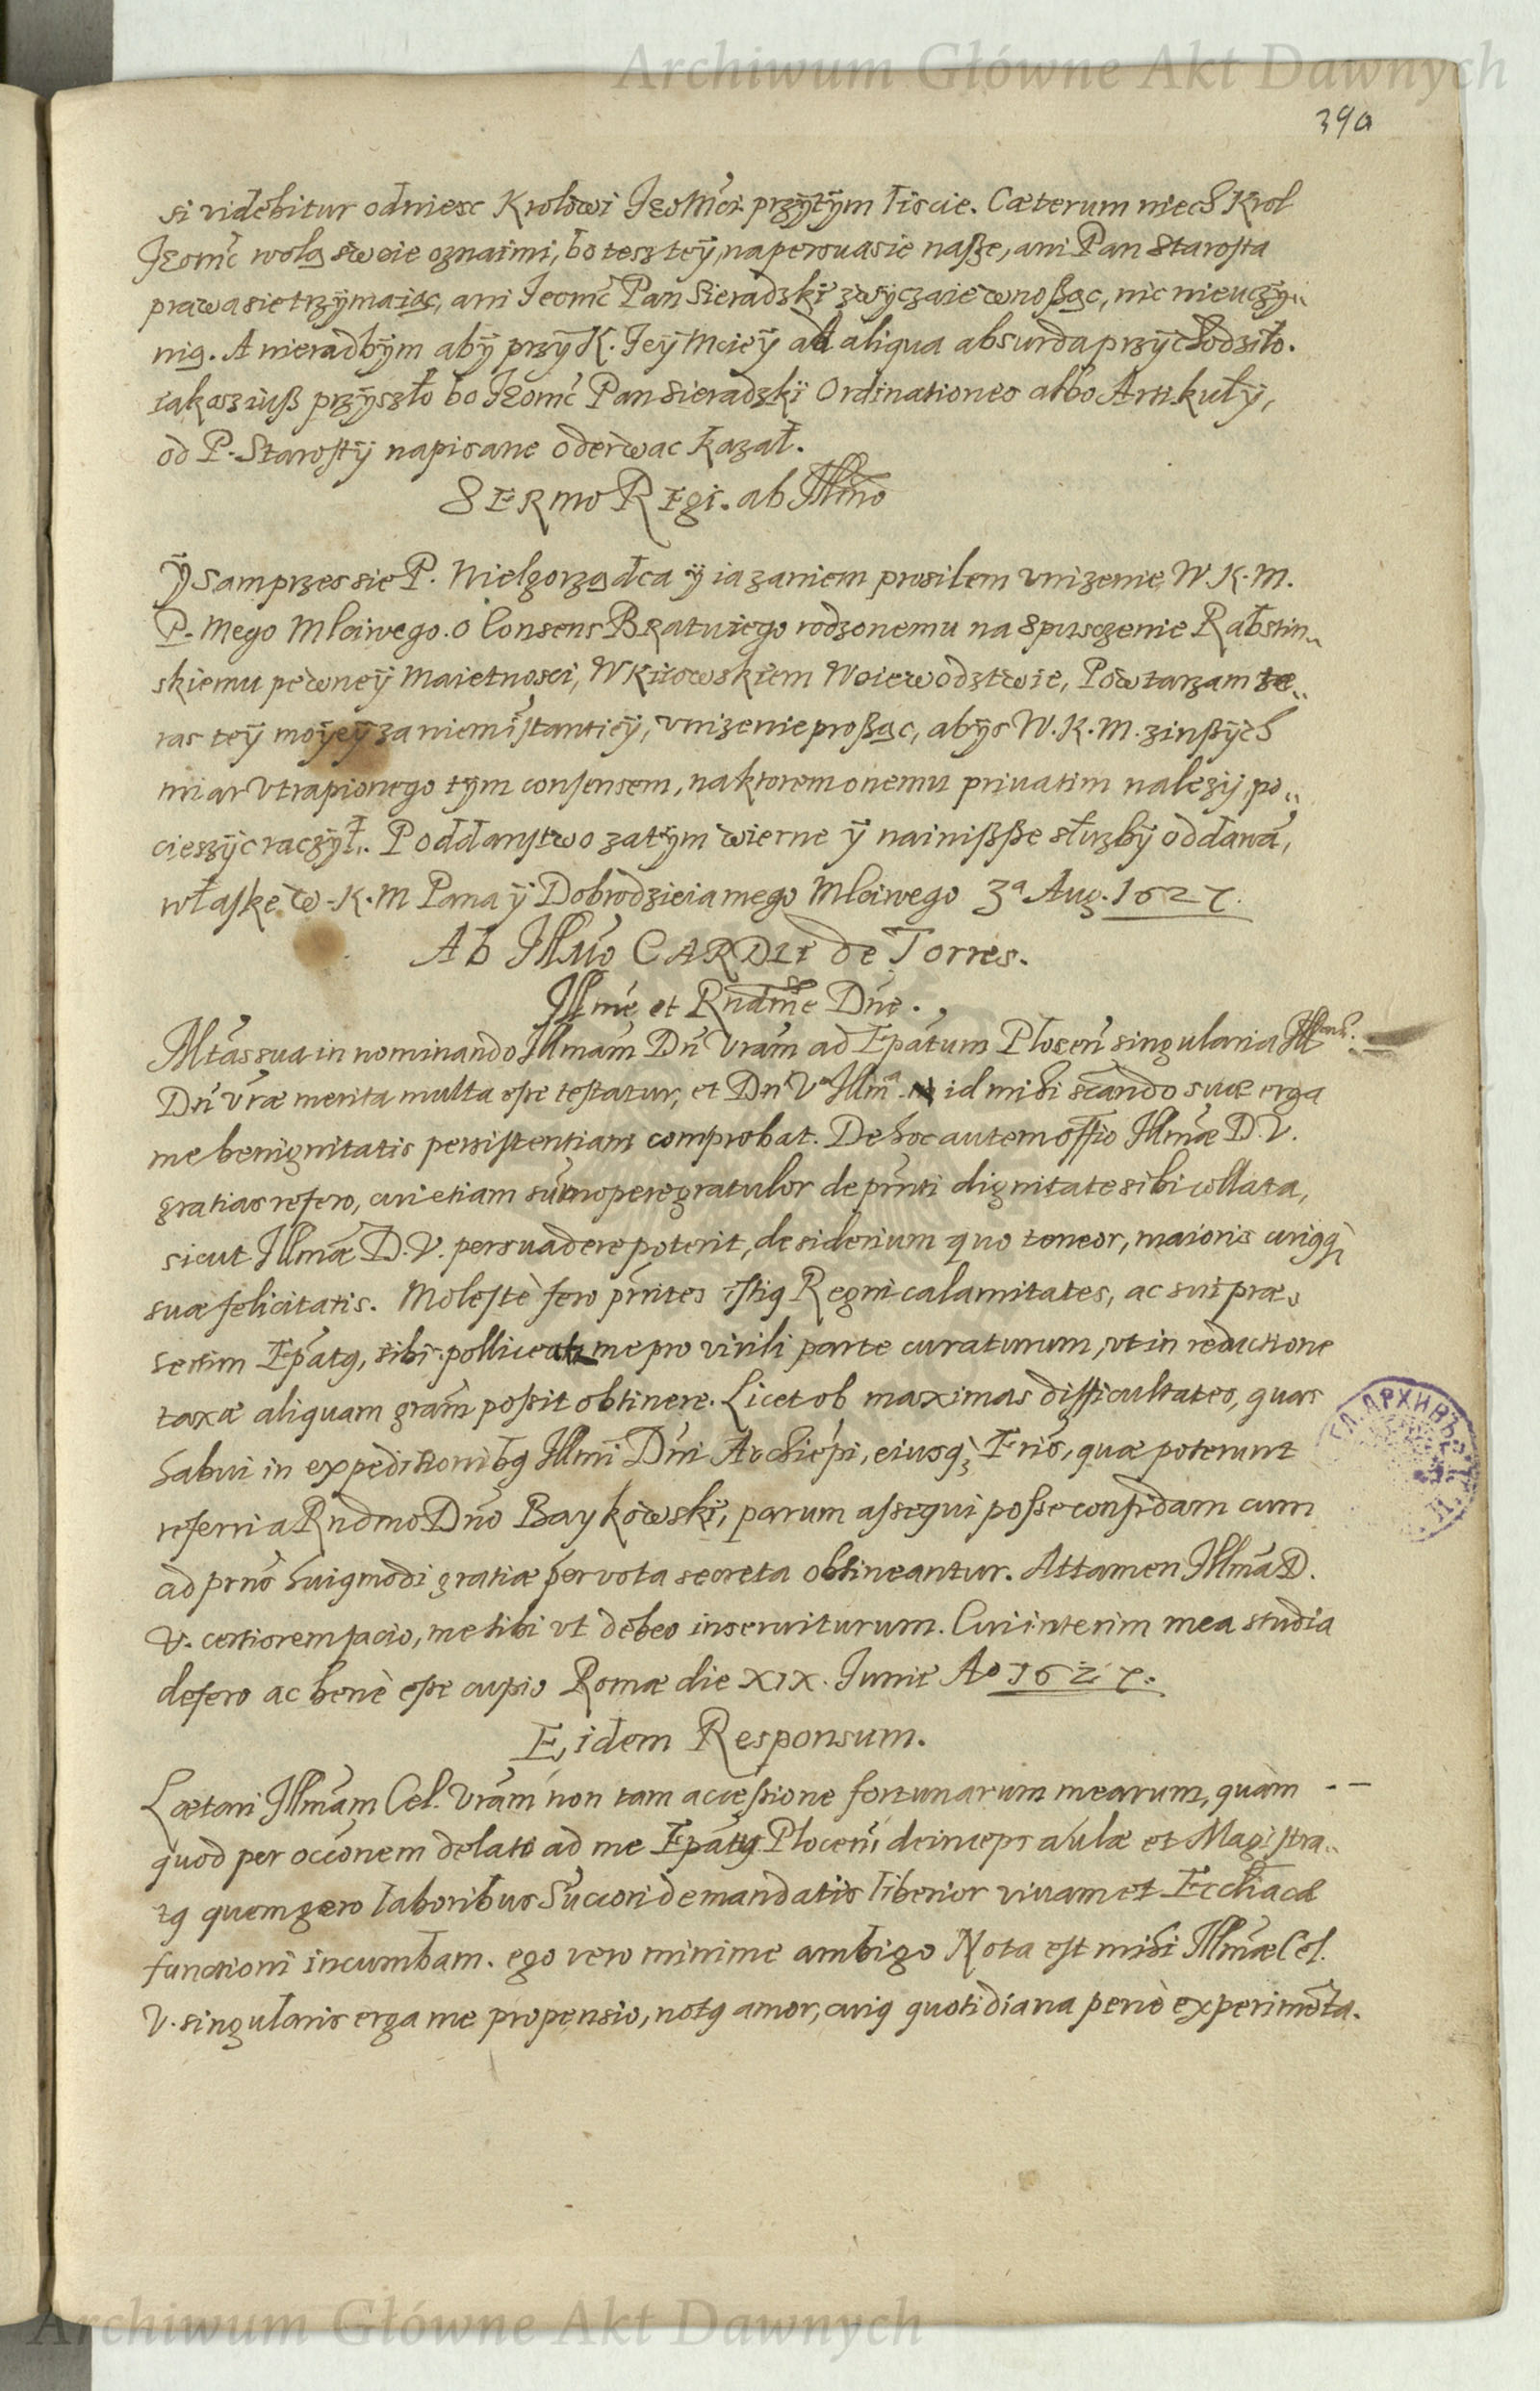 Archiwum Główne Akt Dawnych
39a
si videbitur odniesc Krolowi Jeo Mći przÿtÿm liscie. Cæterum niech Krol
Jeomć wolą swoie oznaimi, bo tesz teÿ, na persuasie nasze, ani Pan Starosta
prawa sie trzÿmaiąc, ani Jeomć Pan Sieradzki zwÿczaie wnoßąc, nic nieuczÿ„
nią. A nieradbÿm abÿ przÿ K. Jeÿ Mcieÿ ad aliqua absurda przÿchodziło.
iakosz iuß przÿszło bo Jeomć Pan Sieradzki Ordinationes albo Artikułÿ,
od P. Starostÿ napisane oderwac kazał.
SERmo REgi. ab Illmo
ÿ sam przes sie P. Wielgorządca ÿ ia zaniem prosilem vnizenie W. K. M.
P. Mego Mlciwego. o Consens Bratu iego rodzonemu na spusczenie Rabstin„
skiemu pewneÿ Maietnosci, W Kiiowskiem Woiewodztwie, Powtarzam te„
ras teÿ moÿeÿ za niem istantieÿ, vnizenie proßąc, abÿs W. K. M. zinßÿch
miar vtrapionego tÿm consensem, na ktorem onemu priuatim nalezÿ, po„
cieszÿc raczÿł. Poddanstwo zatÿm wierne ÿ nainißße słuzbÿ oddawa,
w łaske W. K. M Pana ÿ Dobrodzieia mego Mlciwego 3ª Aug. 1627.
Ab Illmo CARDLI de Torres.
Illme et Rndme Dne.
Mtas sua in nominando Illmam Dn Vram ad Epatum Plocen singularia Ill
Dn vræ merita multa esse testatur, et Dn Vª Illmª id mihi scando suæ erga
me benignitatis persistentiam comprobat. De hoc autem offio Illmæ D. V.
gratias refero, cui etiam summopere gratulor de prnti dignitate sibi collata,
sicut Illmæ D. V. persuadere poterit, desiderium quo teneor, maioris cuiqq
suæ felicitatis. Molestè fero prntes istiq Regni calamitates, ac sui præ„
sertim Epatq, sibi polliceatur me pro virili parte curaturum, vt in reductione
taxæ aliquam gram possit obtinere. Licet ob maximas difficultates, quas
habui in expeditionibq Illmi Dni Archiepi, eiusq, Fris, quæ poterunt
referri a Rndmo Dno Baykowski, parum assequi posse confidam cum
ad prns huiqmodi gratiæ per vota secreta obtineantur. Attamen Illma D.
V. certiorem facio, me sibi vt debeo inseruiturum. Cui interim mea studia
defero ac benè esse cupio Romæ die XIX. Junii Aº 1627.
Eidem Responsum.
Lætari Illmam Cel. Vram non tam accessione fortunarum mearum, quàm - -
quod per occonem delato ad me Epatq Plocen deinceps aulæ et Magistra„
tq quem gero laboribus Succori demandatis liberior viuam et Ecchiacæ
functioni incumbam. ego vero minime ambigo Nota est mihi Illmæ Cel.
V. singularis erga me propensio, notq amor, cuiq quotidiana penè experimenta.
ГЛ. АРХИВЪ
Archiwum Główne Akt Dawnych